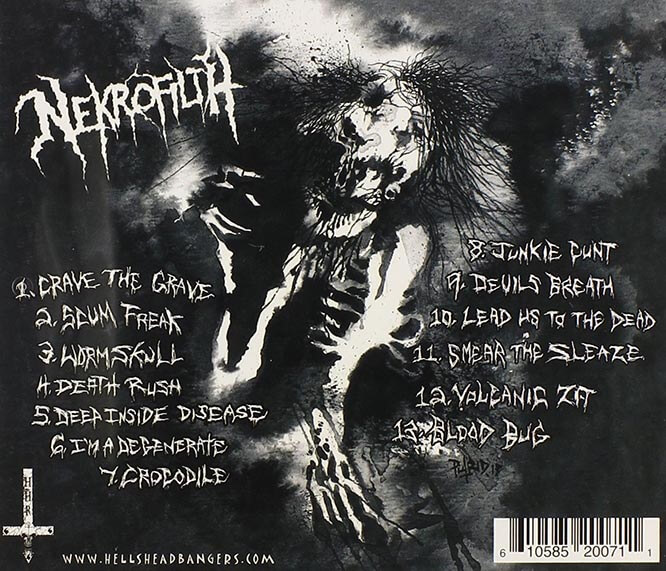 NEKROFILTH
1. CRAVE THE GRAVE
2. SCUM FREAK
3. WORMSKULL
4. DEATH RUSH
5. DEEP INSIDE DISEASE
6. I'M A DEGENERATE
7. CROCODILE
8. JUNKIE CUNT
9. DEVILS BREATH
10. LEAD US TO THE DEAD
11. SMEAR THE SLEAZE
12. VOLCANIC ZIT
13. BLOOD BUG
HHR
WWW.HELLSHEADBANGERS.COM
6 10585 20071 1